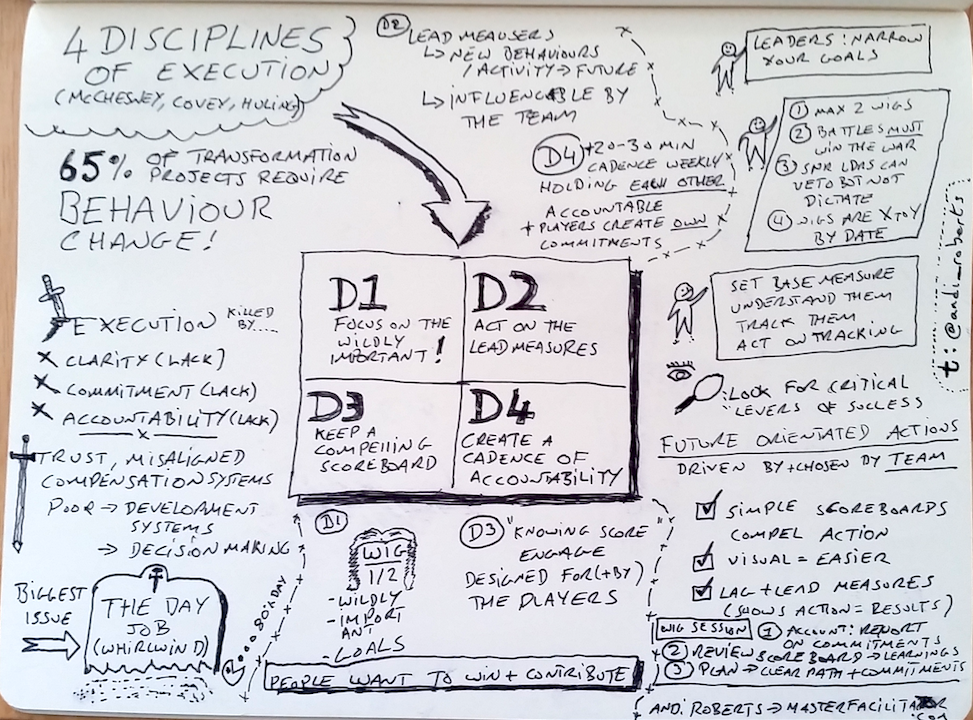 4 DISCIPLINES
OF EXECUTION
(McCHESNEY, COVEY, HULING)
65% OF TRANSFORMATION
PROJECTS REQUIRE
BEHAVIOUR
CHANGE!
EXECUTION KILLED
BY.....
x CLARITY (LACK)
x COMMITMENT (LACK)
x ACCOUNTABILITY (LACK)
x
TRUST, MISALIGNED
COMPENSATION SYSTEMS
POOR → DEVELOPMENT
SYSTEMS
→ DECISION MAKING
BIGGEST
ISSUE
THE DAY
JOB
(WHIRLWIND)
80% DAY
D2 LEAD MEAUSERS
↳ NEW BEHAVIOURS
/ ACTIVITY → FUTURE
↳ INFLUENCABLE BY
THE TEAM
D4 +20-30 MIN
CADENCE WEEKLY
HOLDING EACH OTHER
ACCOUNTABLE
+ PLAYERS CREATE OWN
COMMITMENTS
D1
FOCUS ON THE
WILDLY
IMPORTANT!
D2
ACT ON THE
LEAD MEASURES
D3
KEEP A
COMPELLING
SCOREBOARD
D4
CREATE A
CADENCE OF
ACCOUNTABILITY
D1
WIG
1/2
-WILDLY
-IMPORT
ANT
-GOALS
D3 "KNOWING SCORE"
ENGAGE
DESIGNED FOR (+BY)
THE PLAYERS
PEOPLE WANT TO WIN + CONTRIBUTE
LEADERS: NARROW
YOUR GOALS
① MAX 2 WIGS
② BATTLES MUST
WIN THE WAR
③ SNR LDRS CAN
VETO BUT NOT
DICTATE
④ WIGS ARE X TO Y
BY DATE
t: @andi_roberts
SET BASE MEASURE
UNDERSTAND THEM
TRACK THEM
ACT ON TRACKING
: LOOK FOR CRITICAL
LEVERS OF SUCCESS
FUTURE ORIENTATED ACTIONS
DRIVEN BY + CHOSEN BY TEAM
☑ SIMPLE SCOREBOARDS
COMPEL ACTION
☑ VISUAL = EASIER
☑ LAG + LEAD MEASURES
(SHOWS ACTION = RESULTS)
WIG SESSION ① ACCOUNT: REPORT
ON COMMITMENTS
② REVIEW SCOREBOARD → LEARNINGS
③ PLAN → CLEAR PATH + COMMITMENTS
ANDI ROBERTS → MASTERFACILITATOR
.COM